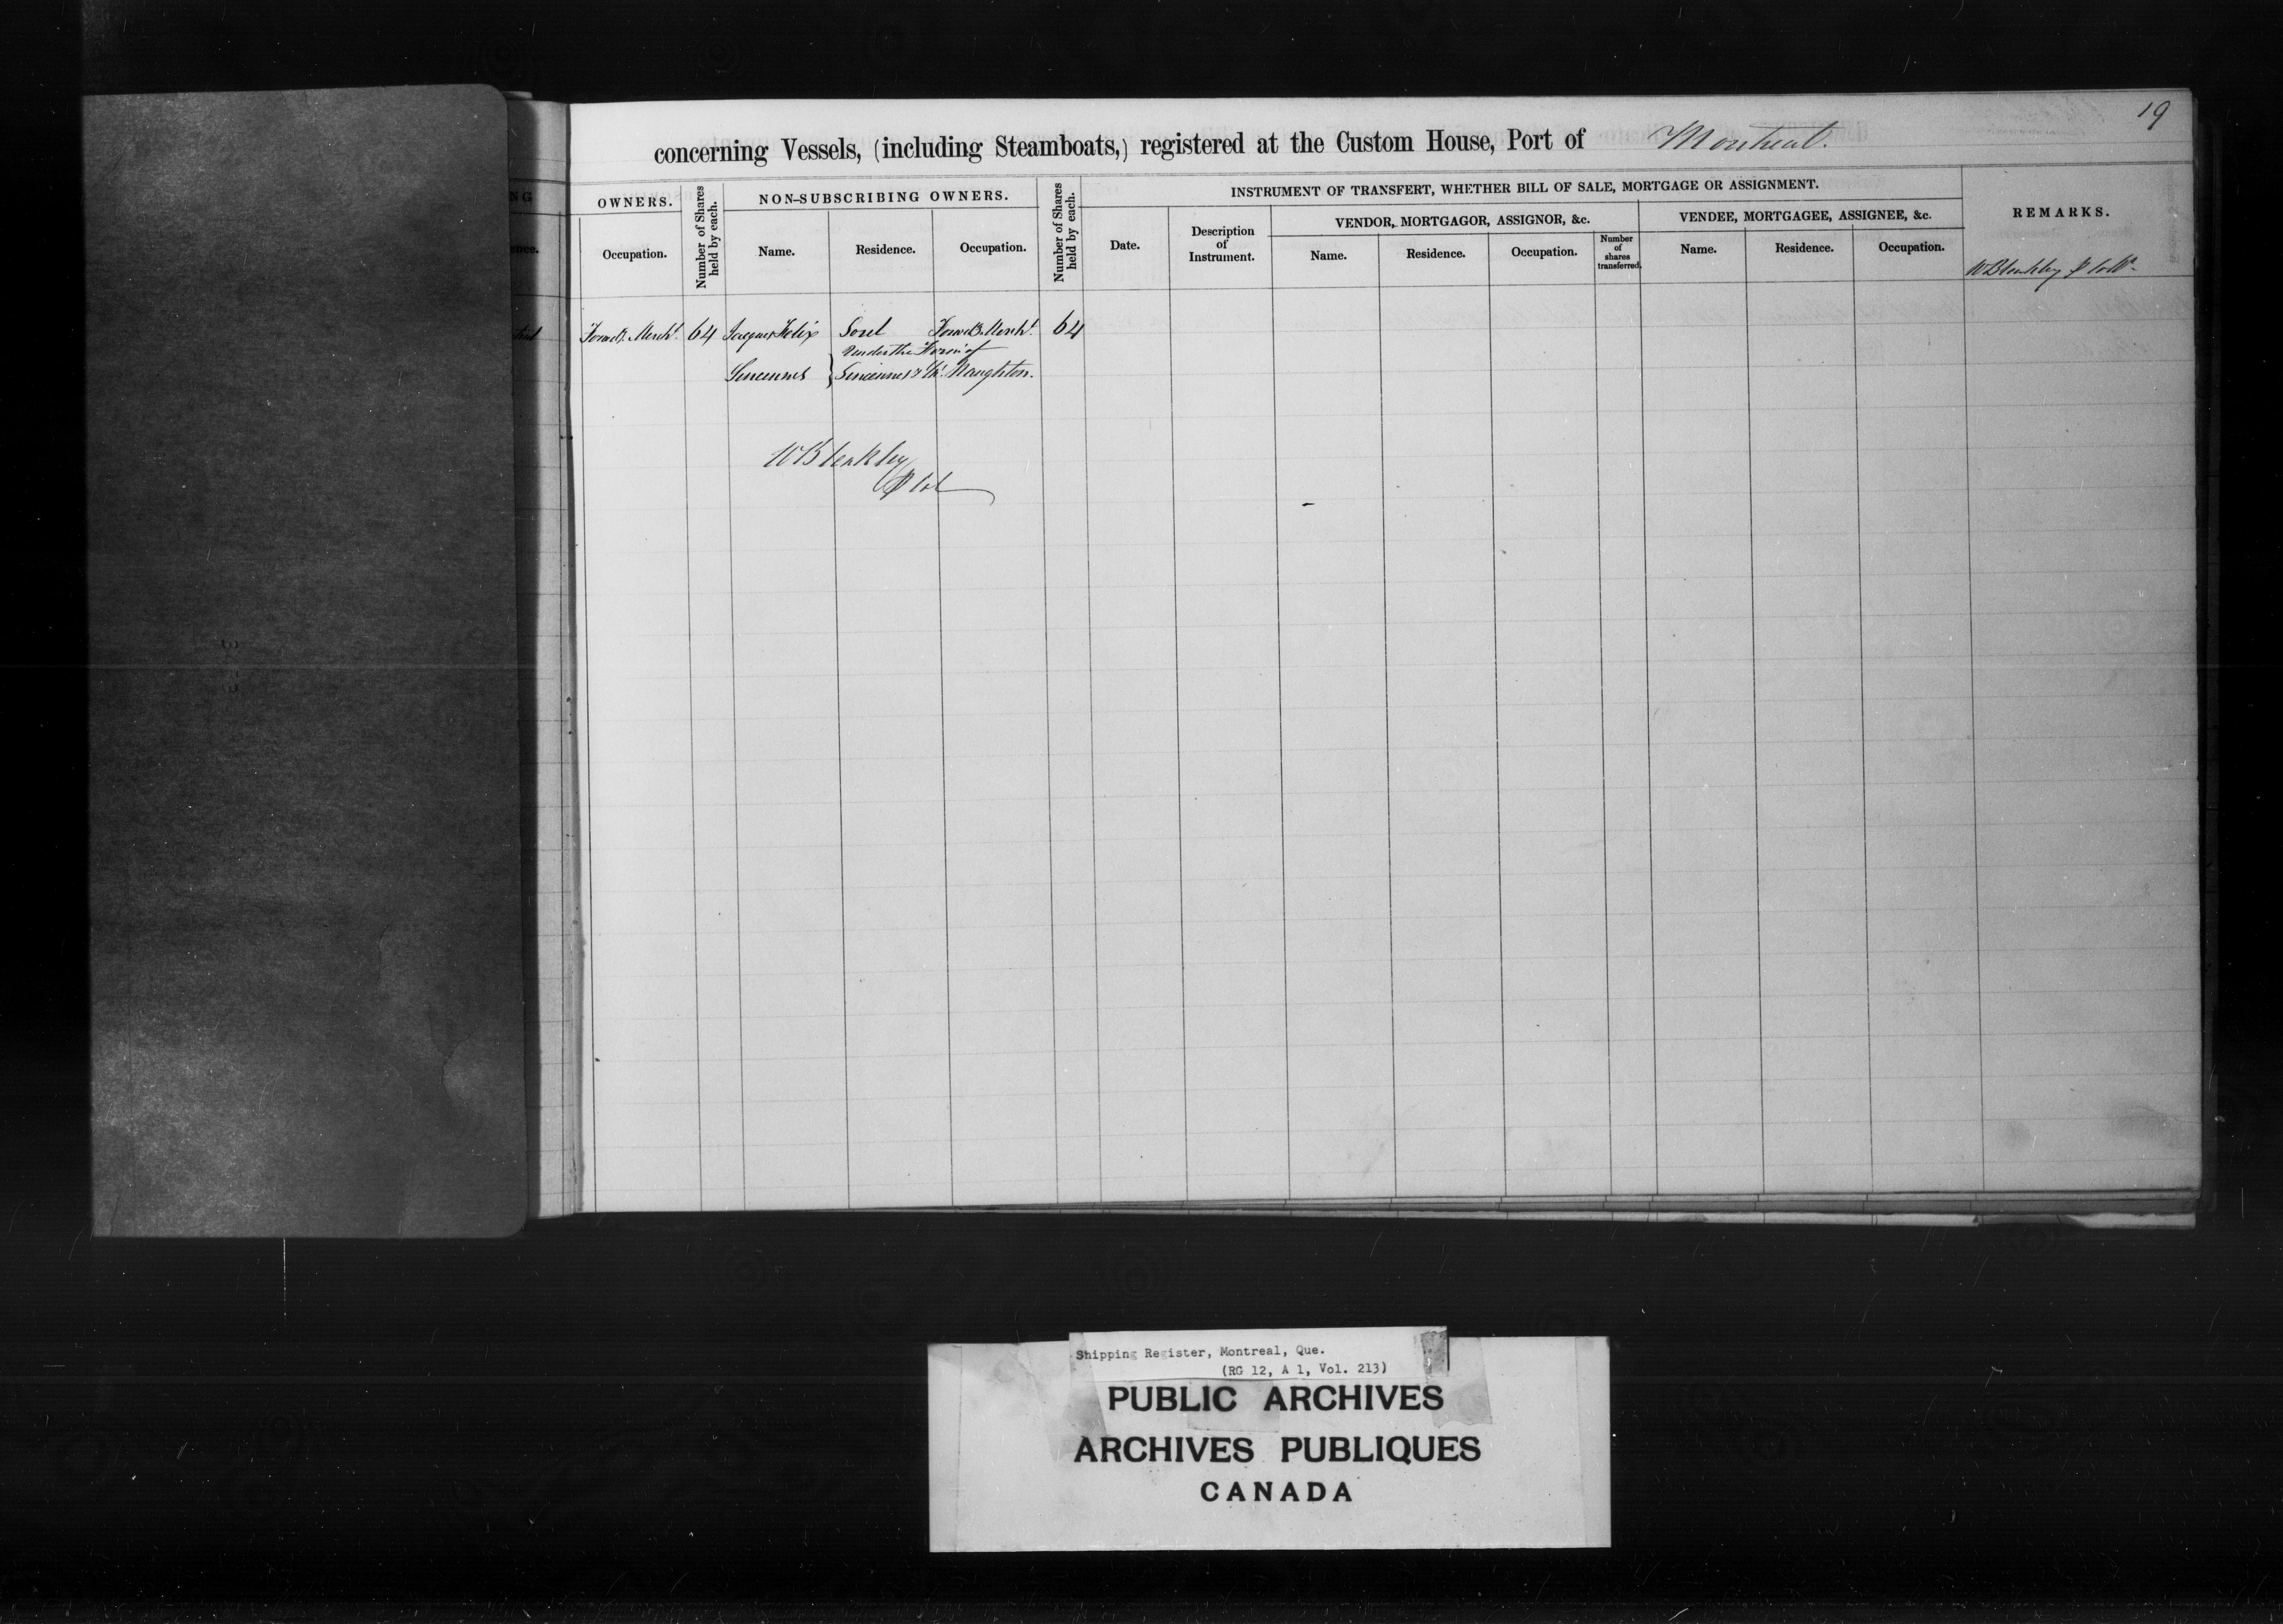 19
concerning Vessels, (including Steamboats,) registered at the Custom House, Port of Montreal.
OWNERS.
Number of Shares held by each.
NON-SUBSCRIBING OWNERS.
Number of Shares held by each.
INSTRUMENT OF TRANSFERT, WHETHER BILL OF SALE, MORTGAGE OR ASSIGNMENT.
REMARKS.
VENDOR, MORTGAGOR, ASSIGNOR, &c.
VENDEE, MORTGAGEE, ASSIGNEE, &c.
Occupation.
Name.
Residence.
Occupation.
Date.
Description of Instrument.
Name.
Residence.
Occupation.
Number of shares transferred.
Name.
Residence.
Occupation.
W Bleakley
Forwd. Mercht. 64 Jacques Felix Sorel Forwd. Mercht. 64
Under the Firm of
Sincennes } Sincennes & Mc. Naughton.
W Bleakley
Shipping Register, Montreal, Que.
(RG 12, A 1, Vol. 213)
PUBLIC ARCHIVES
ARCHIVES PUBLIQUES
CANADA